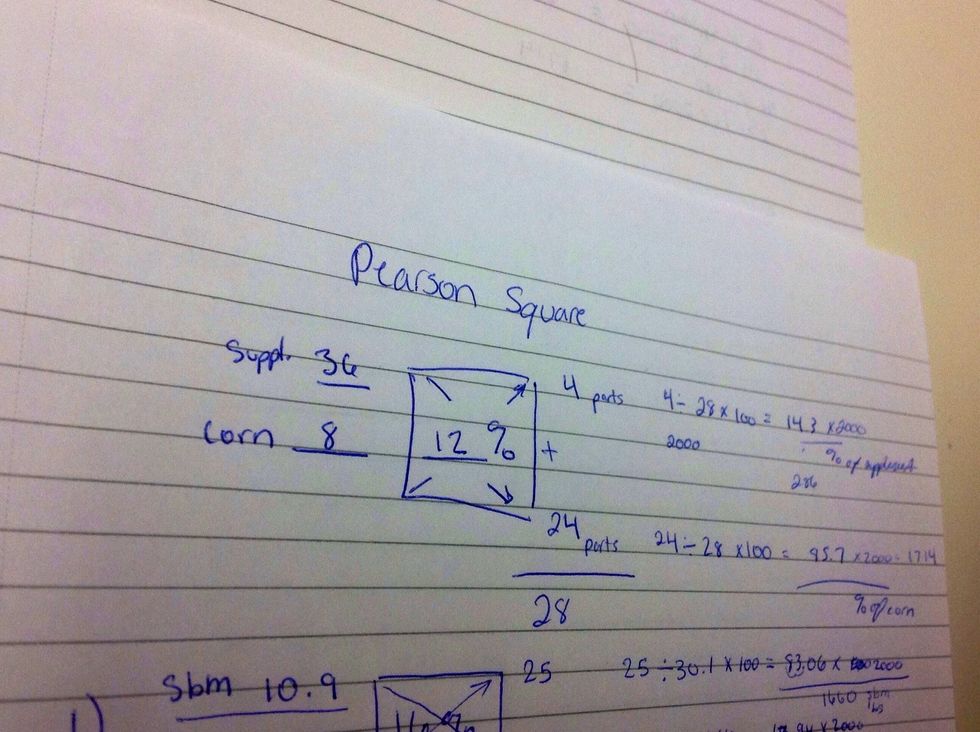 Pearson Square
Suppl. 36 4 parts 4 ÷ 28 x 100 = 14.3 x 2000
2000 % of supplement
286
corn 8 12 % +
24 parts 24 ÷ 28 x 100 = 85.7 x 2000 = 1714
28 % of corn
1) Sbm 10.9 25 25 ÷ 30.1 x 100 = 83.06 x 2000
1660 sbm
lbs
x 2000